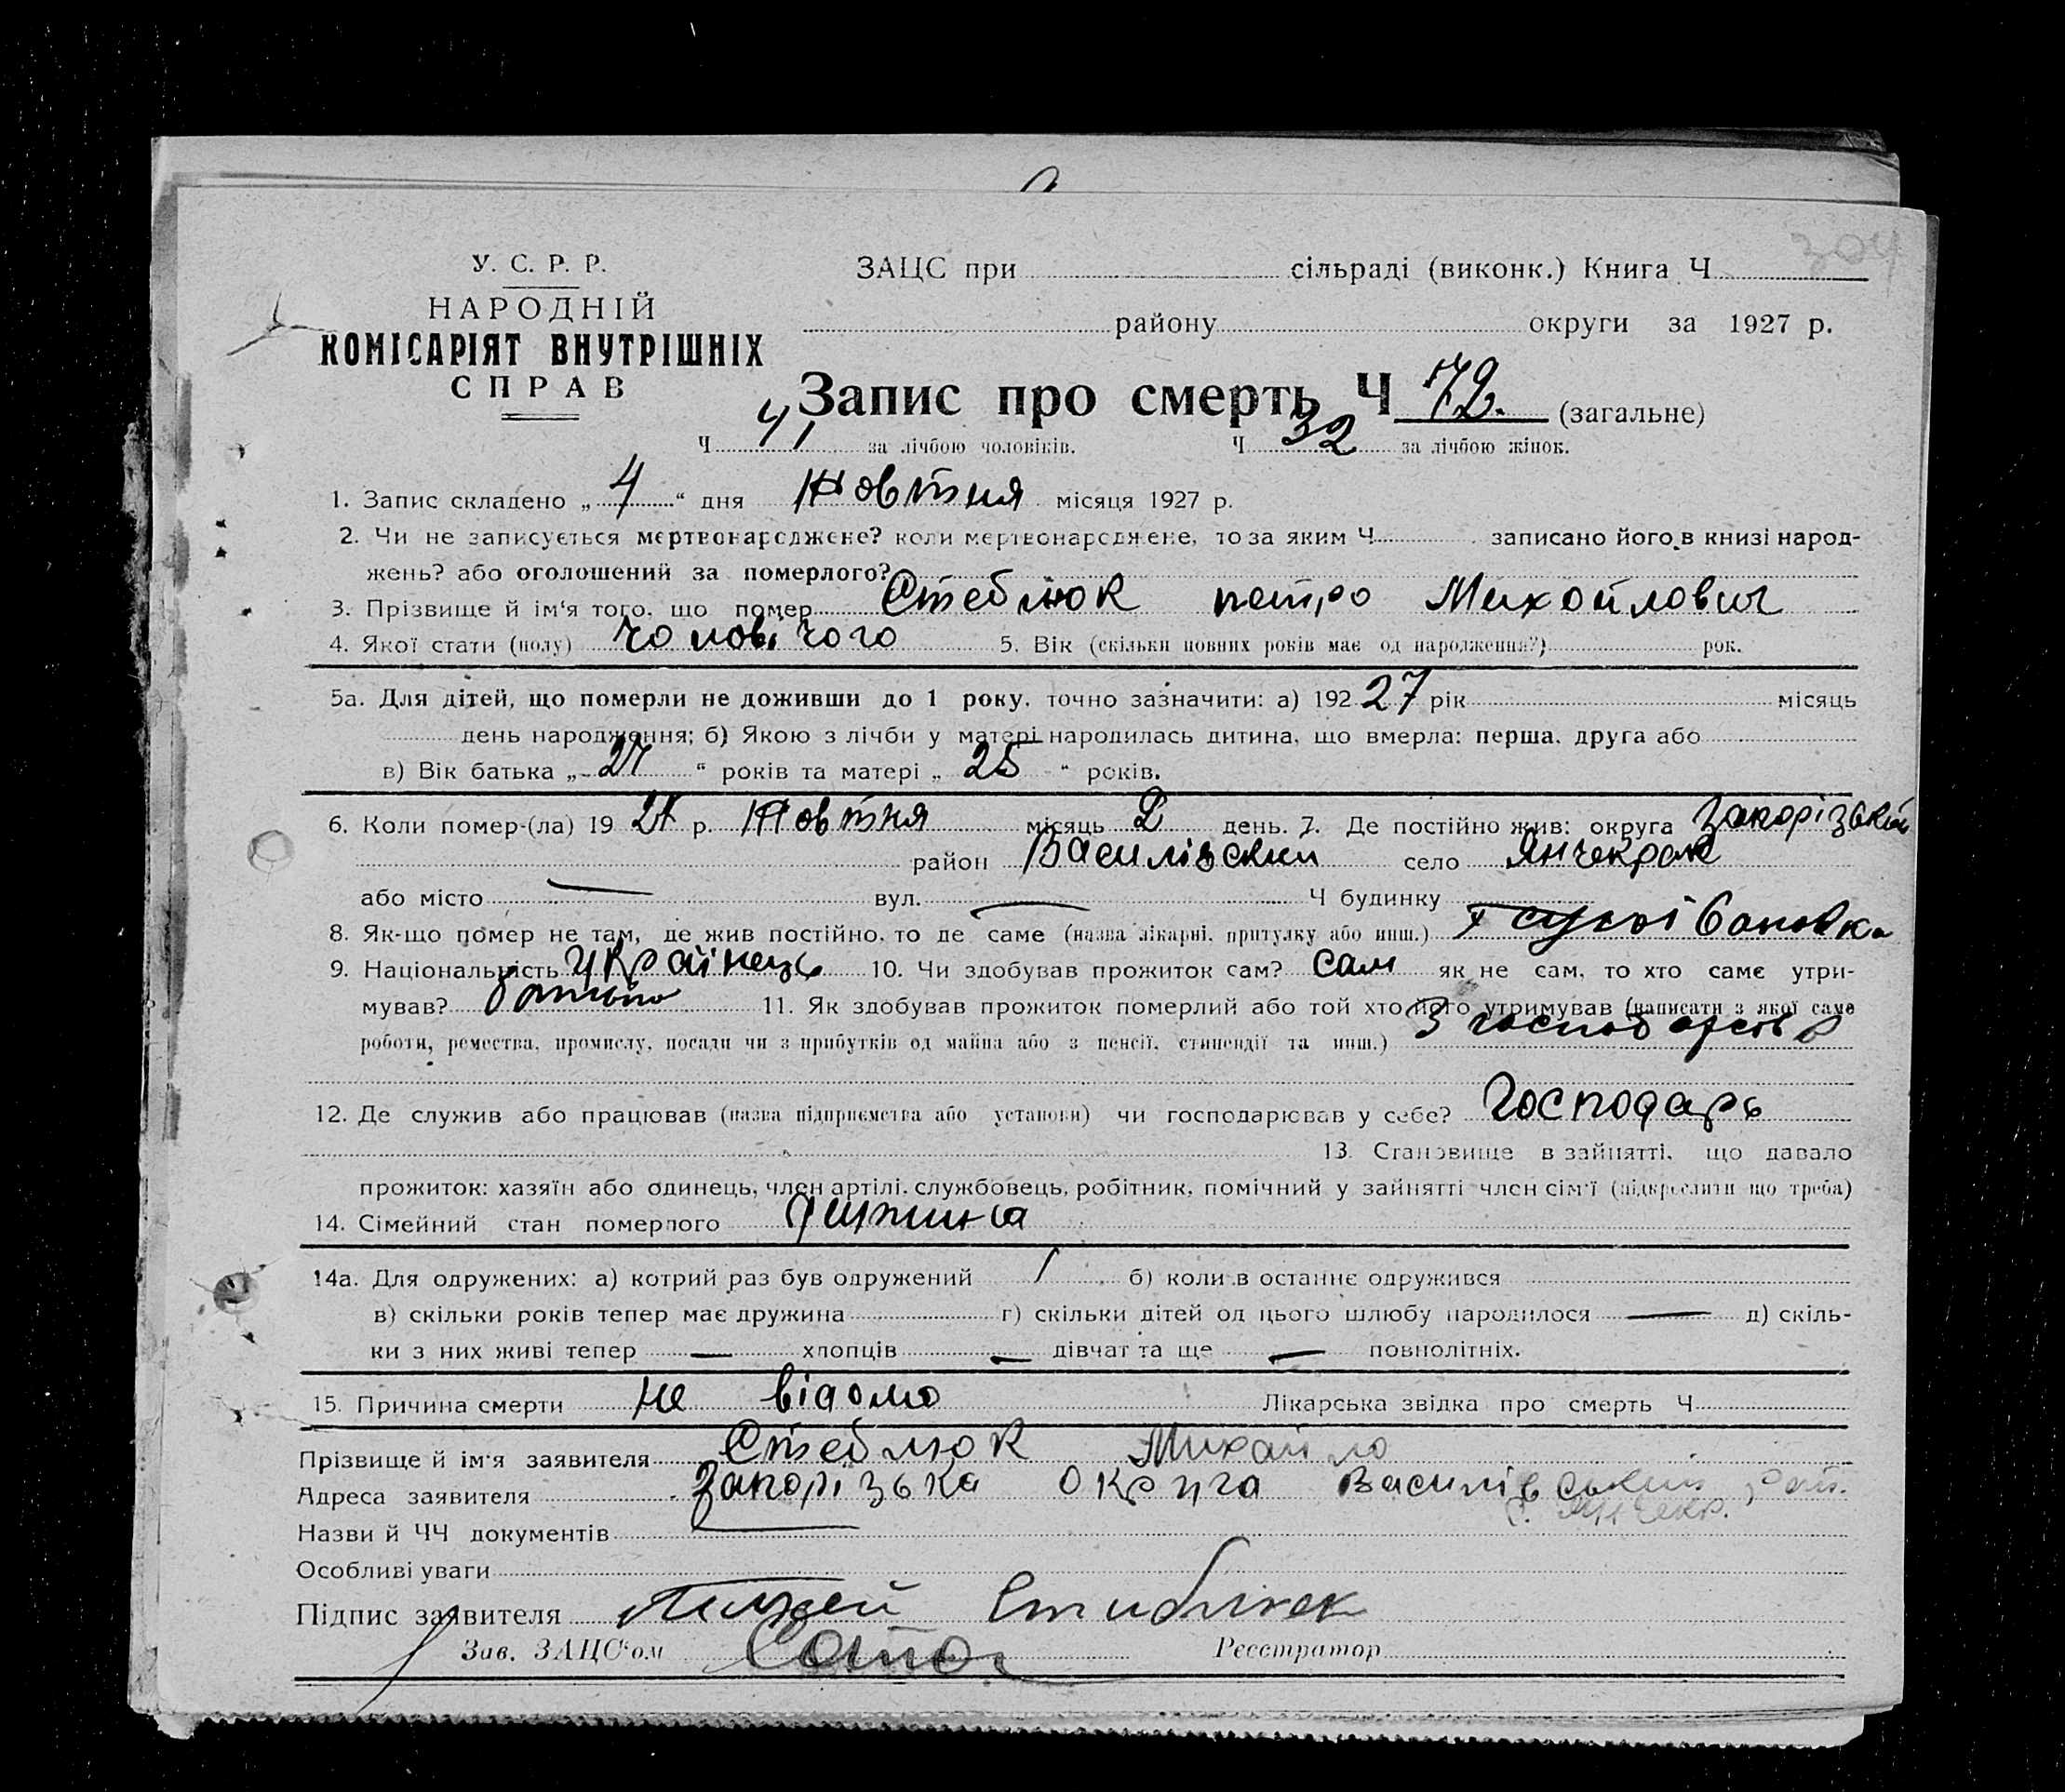 304
У. С. Р. Р.
НАРОДНІЙ
КОМІСАРІЯТ ВНУТРІШНІХ
СПРАВ
ЗАЦС при сільраді (виконк.) Книга Ч
району округи за 1927 р.
Запис про смерть Ч 72. (загальне)
Ч 41 за лічбою чоловіків. Ч 32 за лічбою жінок.
1. Запис складено „ 4 “ дня Жовтня місяця 1927 р.
2. Чи не записується мертвонароджене? коли мертвонароджене, то за яким Ч записано його в книзі народ-
жень? або оголошений за померлого?
3. Прізвище й ім‘я того, що помер Стеблюк петро Михойлович
4. Якої стати (полу) чоловічого 5. Вік (скільки повних років має од народження?) рок.
5а. Для дітей, що померли не доживши до 1 року, точно зазначити: а) 192 27 рік місяць
день народження; б) Якою з лічби у матері народилась дитина, що вмерла: перша, друга або
в) Вік батька „ 27 “ років та матері „ 25 “ років.
6. Коли помер-(ла) 19 27 р. Жовтня місяць 2 день. 7. Де постійно жив: округа Запорізький
район Василівский село Янчекрак
або місто — вул. — Ч будинку —
8. Як-що помер не там, де жив постійно, то де саме (назва лікарні, притулку або инш.)
9. Національність Українець 10. Чи здобував прожиток сам? сам як не сам, то хто саме утри-
мував? 11. Як здобував прожиток померлий або той хто його утримував (написати з якої саме
роботи, ремества, промислу, посади чи з прибутків од майна або з пенсії, стипендії та инш.) З господарства
12. Де служив або працював (назва підприємства або установи) чи господарював у себе? Господарь
13. Становище в зайнятті, що давало
прожиток: хазяїн або одинець, член артілі, службовець, робітник, помічний у зайнятті член сім‘ї (підкреслити що треба)
14. Сімейний стан померлого
14а. Для одружених: а) котрий раз був одружений / б) коли в останнє одружився
в) скільки років тепер має дружина г) скільки дітей од цього шлюбу народилося — д) скіль-
ки з них живі тепер — хлопців — дівчат та ще — повнолітніх.
15. Причина смерти не відомо Лікарська звідка про смерть Ч
Прізвище й ім‘я заявителя Стеблюк Михайло
Адреса заявителя Запорізька округа Василівський рай.
с. Янчекр.
Назви й ЧЧ документів —
Особливі уваги
Підпис заявителя
Зав. ЗАЦС‘ом Реєстратор